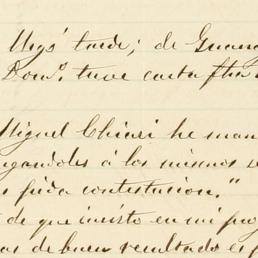 tarde; de
Dom.º tuve carta fha
Miguel Chiari he man
gandoles á los mismos
pida contestacion."
de que insisto en mi
as de buen resultado es